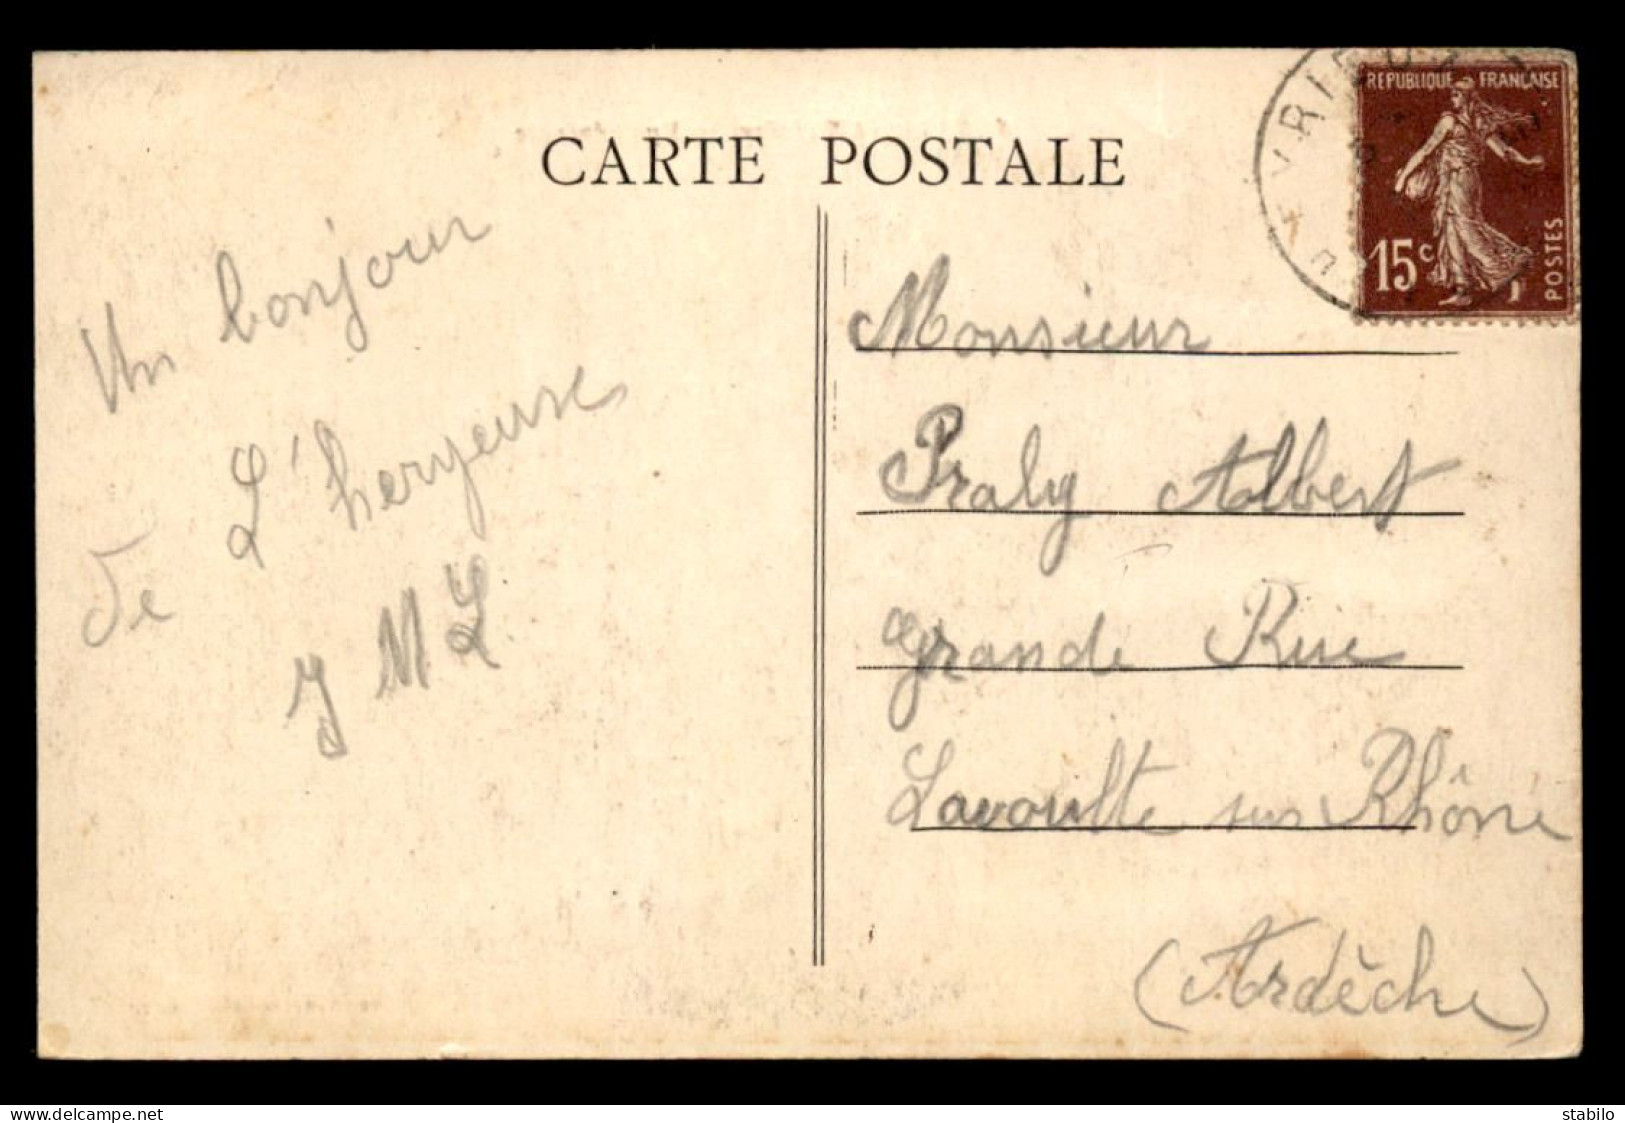 CARTE POSTALE
REPUBLIQUE FRANÇAISE
15c
POSTES
Un bonjour
de L'heryeuse
J M L
Monsieur
Praly Albert
grande Rue
Lavoulte sur Rhône
(Ardèche)
www.delcampe.net
stabilo